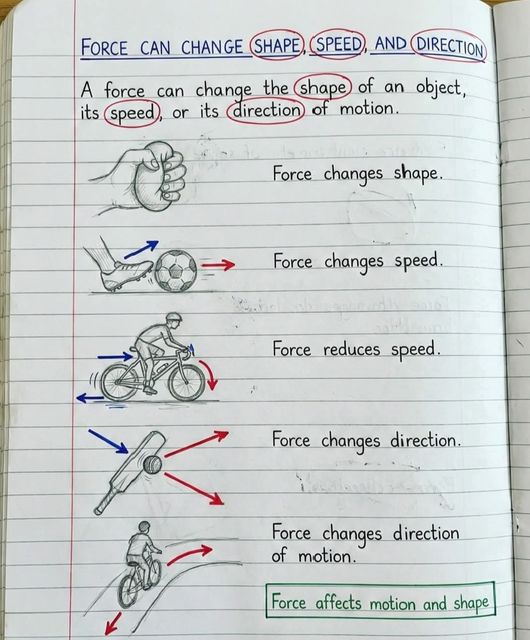 FORCE CAN CHANGE SHAPE, SPEED, AND DIRECTION
A force can change the shape of an object,
its speed, or its direction of motion.
Force changes shape.
Force changes speed.
Force reduces speed.
Force changes direction.
Force changes direction
of motion.
Force affects motion and shape